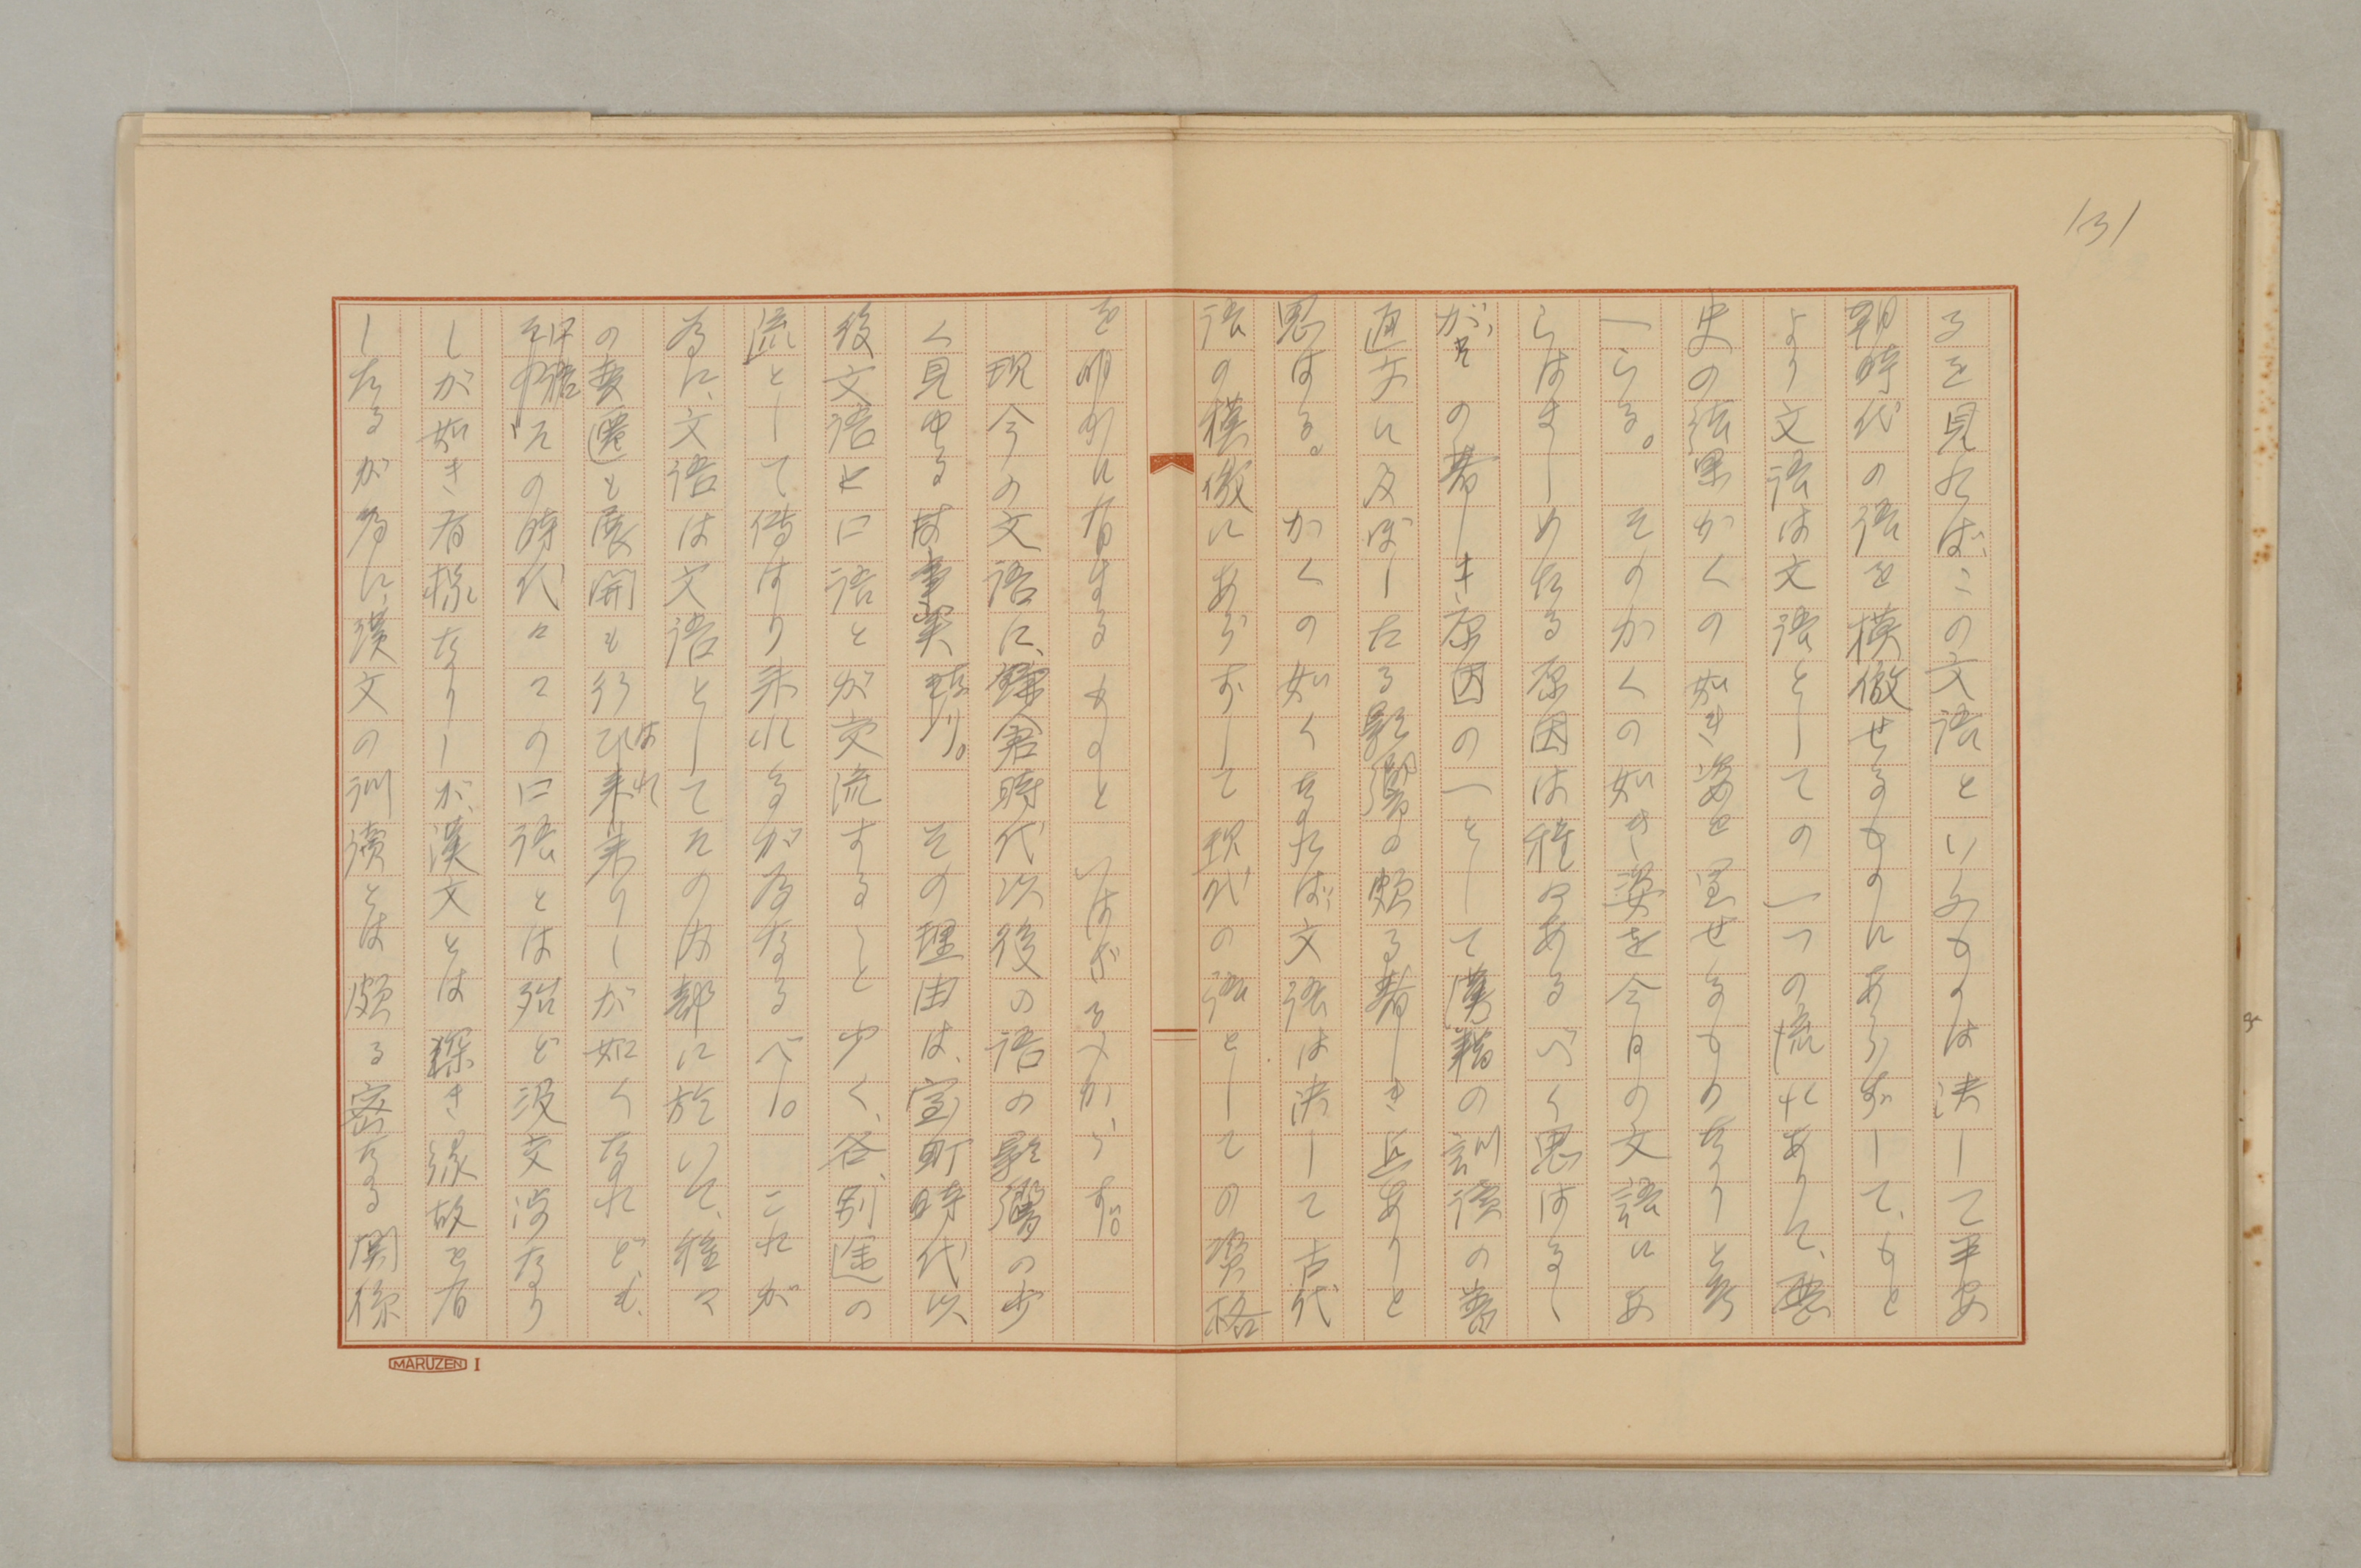 131
るを見れば、この文語といふものは決して平安
朝時代の語を模倣せるものにあらずして、もと
より文語は文語としての一つの流れありて、歴
史の結果かくの如き姿を呈せるものなりと考
へらる。そのかくの如き姿を今日の文語にあ
らはさしめたる原因は種々あるべく思はるゝ
が、その著しき原因の一として漢籍の訓読の普
通文に及ぼしたる影響の頗る著しき点ありと
思はる。かくの如くなれば、文語は決して古代
語の模倣にあらずして現代の語としての資格
を明かに有するものといはざるべからず。
現今の文語に、鎌倉時代以後の語の影響の少
く見ゆるは事実なり。その理由は、室町時代以
後文語と口語とが交流すること少く、各、別途の
流として傳はり来れるが為なるべし。これが
為に、文語は文語としてその内部に於いて、種々
の変遷と展開も行はれ来りしが如くなれども、
その時代々々の口語とは殆ど没交渉なり
しが如き有様なりしが、漢文とは深き縁故を有
したるが為に、漢文の訓讀とは頗る密なる関係
MARUZEN I